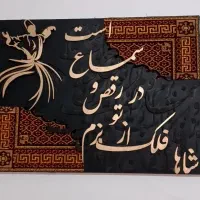 شاها
فلک از بزم
تو
در رقص و
سماع
است